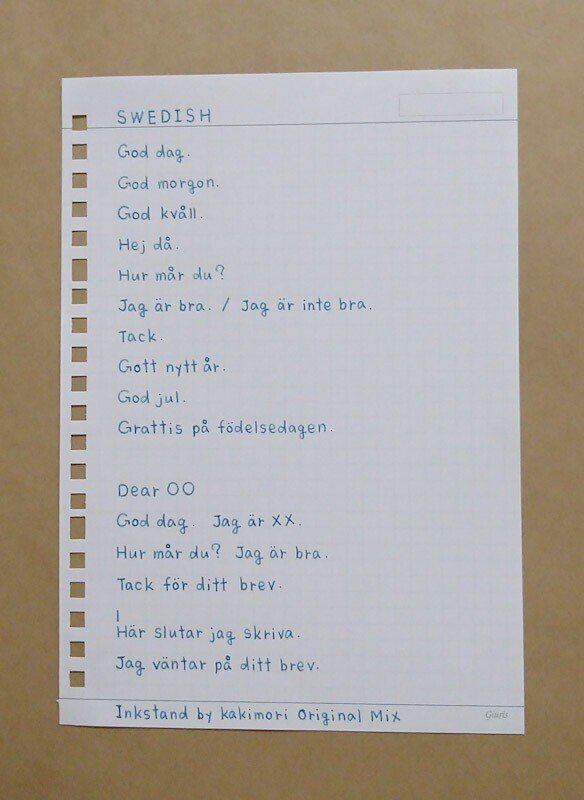 SWEDISH
God dag.
God morgon.
God kväll.
Hej då.
Hur mår du?
Jag är bra. / Jag är inte bra.
Tack.
Gott nytt år.
God jul.
Grattis på födelsedagen.
Dear OO
God dag. Jag är XX.
Hur mår du? Jag är bra.
Tack för ditt brev.
|
Här slutar jag skriva.
Jag väntar på ditt brev.
Inkstand by kakimori Original Mix